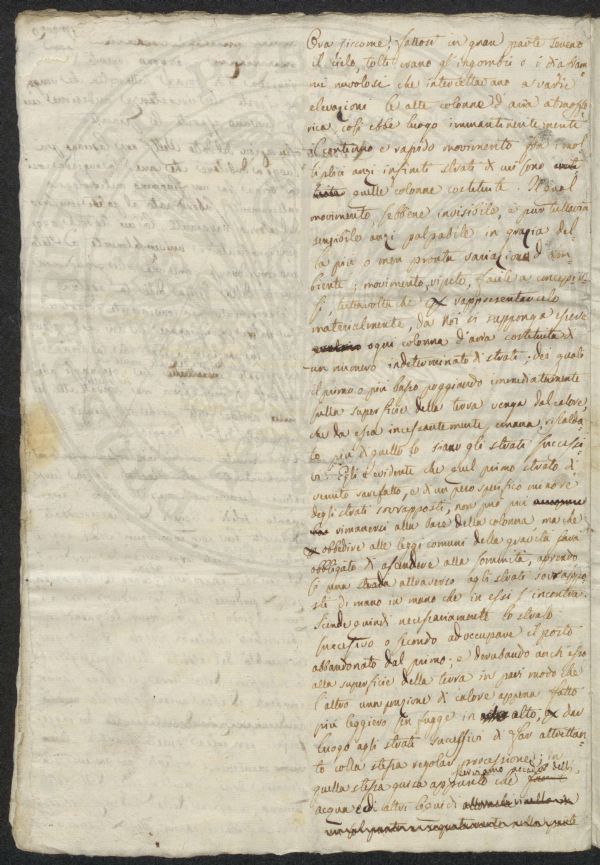 Ora siccome, fattosi in gran parte sereno
il cielo, tolti erano gl'ingombri o i diafram-
mi nuvolosi che intercettavano a varie
elevazioni le alte colonne d'aria atmosfe-
rica, così ebbe luogo immantinentemente
il continuo e rapido movimento fra i mol-
tiplici anzi infiniti strati di cui sono
quelle colonne costituite. Il qual
movimento sebbene invisibile, è pur tuttavia
sensibile anzi palpabile in grazia del-
la più o men pronta variazione d'am-
biente; movimento, ripeto, facile a concepir-
si, tuttavolta che rappresentarcelo
materialmente, da noi si supponga essere
ogni colonna d'aria costituita di
un numero indeterminato di strati; dei quali
il primo o più basso poggiando immediatamente
sulla superficie della terra venga dal calore,
che da essa incessantemente emana, riscalda-
to più di quello lo siano gli strati successi-
vi. Egli è evidente che quel primo strato di-
venuto rarefatto, e di un peso specifico minore
degli strati sovrapposti, non può più
rimanersi alla base della colonna, ma che
obbedire alle leggi comuni della gravità sarà
obbligato di ascendere alla sommità, aprendo-
si una strada attraverso agli strati sovrappo-
sti di mano in mano che in essi s'incontra.
Scende quindi necessariamente lo strato
successivo o secondo ad occupare il posto
abbandonato dal primo; e derubando anch'esso
alla superficie della terra in pari modo che
l'altro una porzione di calore appena fatto
più leggiero sen fugge in alto, dar
luogo agli strati sucessivi di far altrettan-
to colla stessa regolar processione; in
quella stessa guisa appunto che
acqua e di altri liquidi